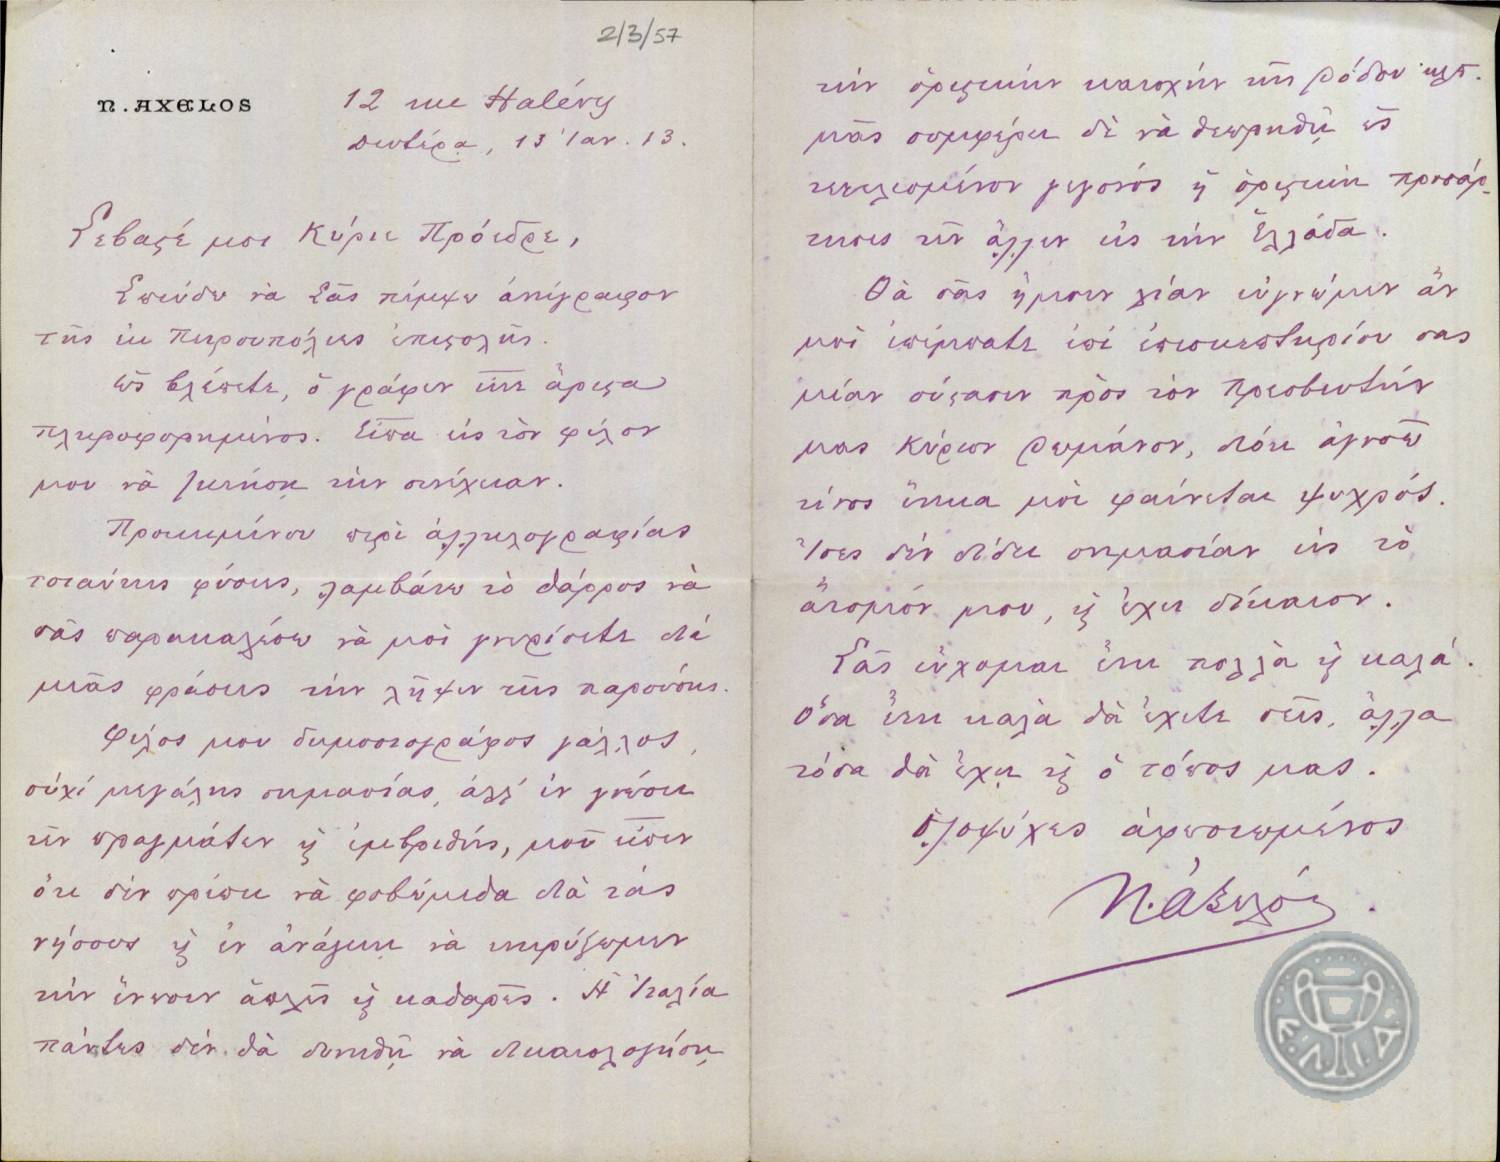 2/3/57
N. AXELOS
12 rue Halévy
Δευτέρα, 13 Ἰαν. 13.
Σεβαστέ μοι Κύριε Πρόεδρε,
Σπεύδω νὰ Σᾶς πέμψω ἀντίγραφον
τῆς ἐκ Πετρουπόλεως ἐπιστολῆς.
Ὡς βλέπετε, ὁ γράφων εἶνε ἄριστα
πληροφορημένος. Εἶπα εἰς τὸν φίλον
μου νὰ ζητήσῃ τὴν συνέχειαν.
Προκειμένου περὶ ἀλληλογραφίας
τοιαύτης φύσεως, λαμβάνω τὸ θάρρος νὰ
σᾶς παρακαλέσω νὰ μοὶ γνωρίσετε διὰ
μιᾶς φράσεως τὴν λῆψιν τῆς παρούσης.
Φίλος μου δημοσιογράφος γάλλος,
οὐχὶ μεγάλης σημασίας, ἀλλ' ἐν γνώσει
τῶν πραγμάτων καὶ ἐμβριθής, μοῦ εἶπεν
ὅτι δὲν πρέπει νὰ φοβώμεθα διὰ τὰς
νήσους καὶ ἐν ἀνάγκῃ νὰ κηρύξωμεν
τὴν ἕνωσιν ἁπλῶς καὶ καθαρῶς. Ἡ Ἰταλία
πάντως δὲν θὰ δυνηθῇ νὰ δικαιολογήσῃ
τὴν ὁριστικὴν κατοχὴν τῆς Ρόδου κλπ.
μᾶς συμφέρει δὲ νὰ θεωρηθῇ ὡς
τετελεσμένον γεγονός ἡ ὁριστικὴ προσάρ-
τησις τῶν ἄλλων εἰς τὴν Ἑλλάδα.
Θὰ σᾶς ἤμουν λίαν εὐγνώμων ἂν
μοὶ ἐπέμπατε ἐπὶ ἐπισκεπτηρίου σας
μίαν σύστασιν πρὸς τὸν Πρεσβευτήν
μας Κύριον Ρωμάνον, διότι ἀγνοῶ
τίνος ἕνεκα μοὶ φαίνεται ψυχρός.
Ἴσως δὲν δίδει σημασίαν εἰς τὸ
ἄτομόν μου, καὶ ἔχει δίκαιον.
Σᾶς εὔχομαι ἔτη πολλὰ καὶ καλά.
Ὅσα ἔτη καλὰ θὰ ἔχετε σεῖς, ἄλλα
τόσα θὰ ἔχῃ καὶ ὁ τόπος μας.
Ὁλοψύχως ἀφοσιωμένος
Ν. Ἀξελός
Ε.Λ.Ι.Α